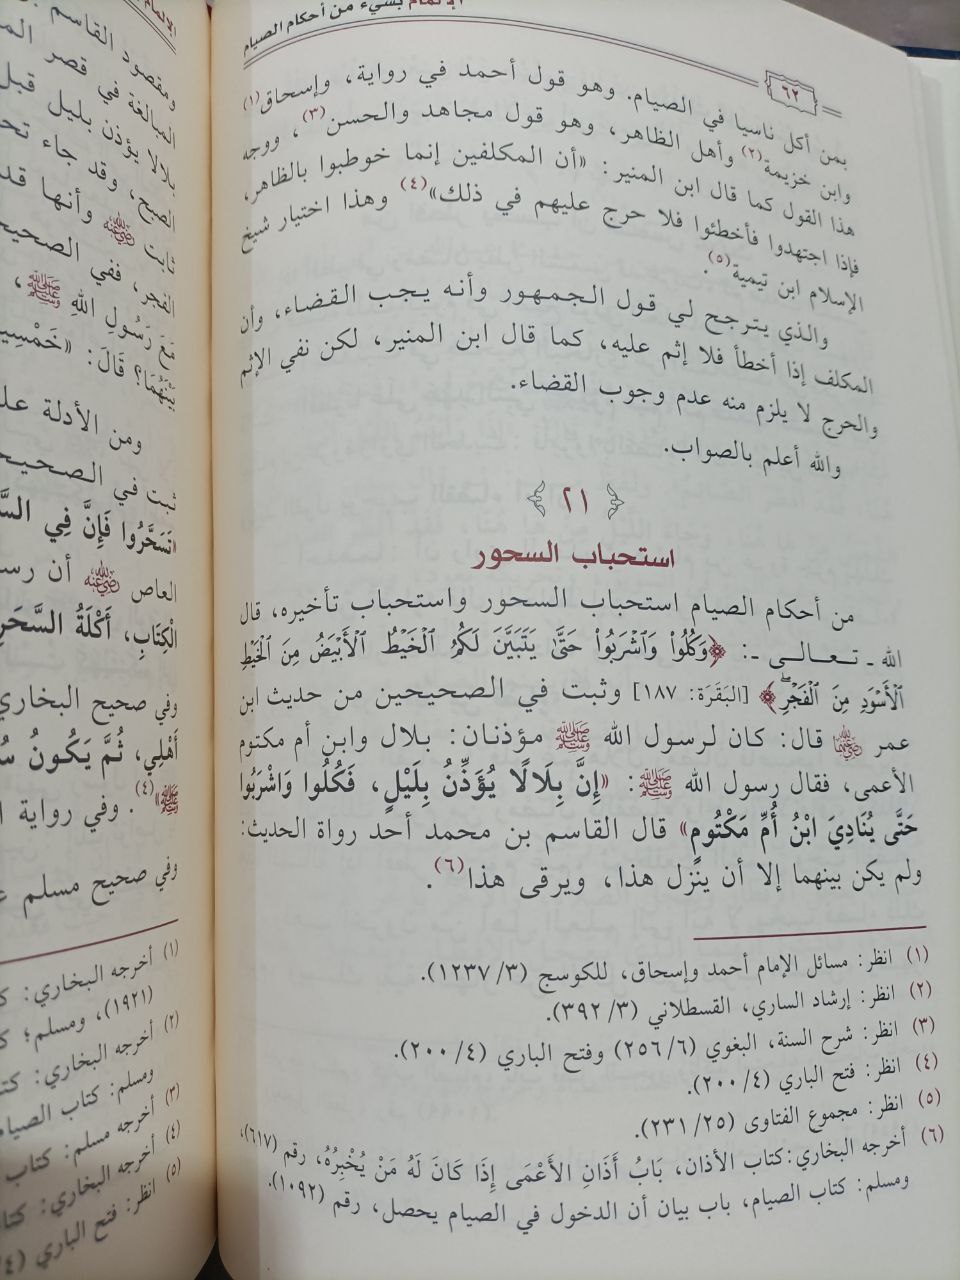 الإلمام بشيء من أحكام الصيام
٦٢
بمن أكل ناسيا في الصيام. وهو قول أحمد في رواية، وإسحاق(١)
وابن خزيمة(٢) وأهل الظاهر، وهو قول مجاهد والحسن(٣)، ووجه
هذا القول كما قال ابن المنير: «أن المكلفين إنما خوطبوا بالظاهر،
فإذا اجتهدوا فأخطئوا فلا حرج عليهم في ذلك»(٤) وهذا اختيار شيخ
الإسلام ابن تيمية(٥).
والذي يترجح لي قول الجمهور وأنه يجب القضاء، وأن
المكلف إذا أخطأ فلا إثم عليه، كما قال ابن المنير، لكن نفي الإثم
والحرج لا يلزم منه عدم وجوب القضاء.
والله أعلم بالصواب.
٢١
استحباب السحور
من أحكام الصيام استحباب السحور واستحباب تأخيره، قال
الله ـ تعالى ـ: ﴿وَكُلُوا۟ وَٱشْرَبُوا۟ حَتَّىٰ يَتَبَيَّنَ لَكُمُ ٱلْخَيْطُ ٱلْأَبْيَضُ مِنَ ٱلْخَيْطِ
ٱلْأَسْوَدِ مِنَ ٱلْفَجْرِۖ﴾ [البَقَرَة: ١٨٧] وثبت في الصحيحين من حديث ابن
عمر رضي الله عنهما قال: كان لرسول الله ﷺ مؤذنان: بلال وابن أم مكتوم
الأعمى، فقال رسول الله ﷺ: «إِنَّ بِلَالًا يُؤَذِّنُ بِلَيْلٍ، فَكُلُوا وَاشْرَبُوا
حَتَّى يُنَادِيَ ابْنُ أُمِّ مَكْتُومٍ» قال القاسم بن محمد أحد رواة الحديث:
ولم يكن بينهما إلا أن ينزل هذا، ويرقى هذا(٦).
(١) انظر: مسائل الإمام أحمد وإسحاق، للكوسج (٣/ ١٢٣٧).
(٢) انظر: إرشاد الساري، القسطلاني (٣/ ٣٩٢).
(٣) انظر: شرح السنة، البغوي (٦/ ٢٥٦) وفتح الباري (٤/ ٢٠٠).
(٤) انظر: فتح الباري (٤/ ٢٠٠).
(٥) انظر: مجموع الفتاوى (٢٥/ ٢٣١).
(٦) أخرجه البخاري: كتاب الأذان، بَابُ أَذَانِ الأَعْمَى إِذَا كَانَ لَهُ مَنْ يُخْبِرُهُ، رقم (٦١٧)،
ومسلم: كتاب الصيام، باب بيان أن الدخول في الصيام يحصل، رقم (١٠٩٢).
ومقصود القاسم
المبالغة في قصر
بلالا يؤذن بليل قبل
الصبح، وقد جاء
ثابت رضي الله عنه وأنها
الفجر، ففي
مَعَ رَسُولِ اللهِ ﷺ،
بَيْنَهُمَا؟ قَالَ:
ومن الأدلة
ثبت في
«تَسَحَّرُوا فَإِنَّ فِي
العاص رضي الله عنه أن
الْكِتَابِ، أَكْلَةُ السَّحَرِ
وفي صحيح البخاري
أَهْلِي، ثُمَّ يَكُونُ
ﷺ»(٤). وفي رواية
وفي صحيح مسلم
(١) أخرجه البخاري:
(١٩٢١)، ومسلم؛
(٢) أخرجه البخاري:
ومسلم: كتاب
(٣) أخرجه مسلم: كتاب
(٤) أخرجه البخاري:
(٥) انظر: فتح الباري